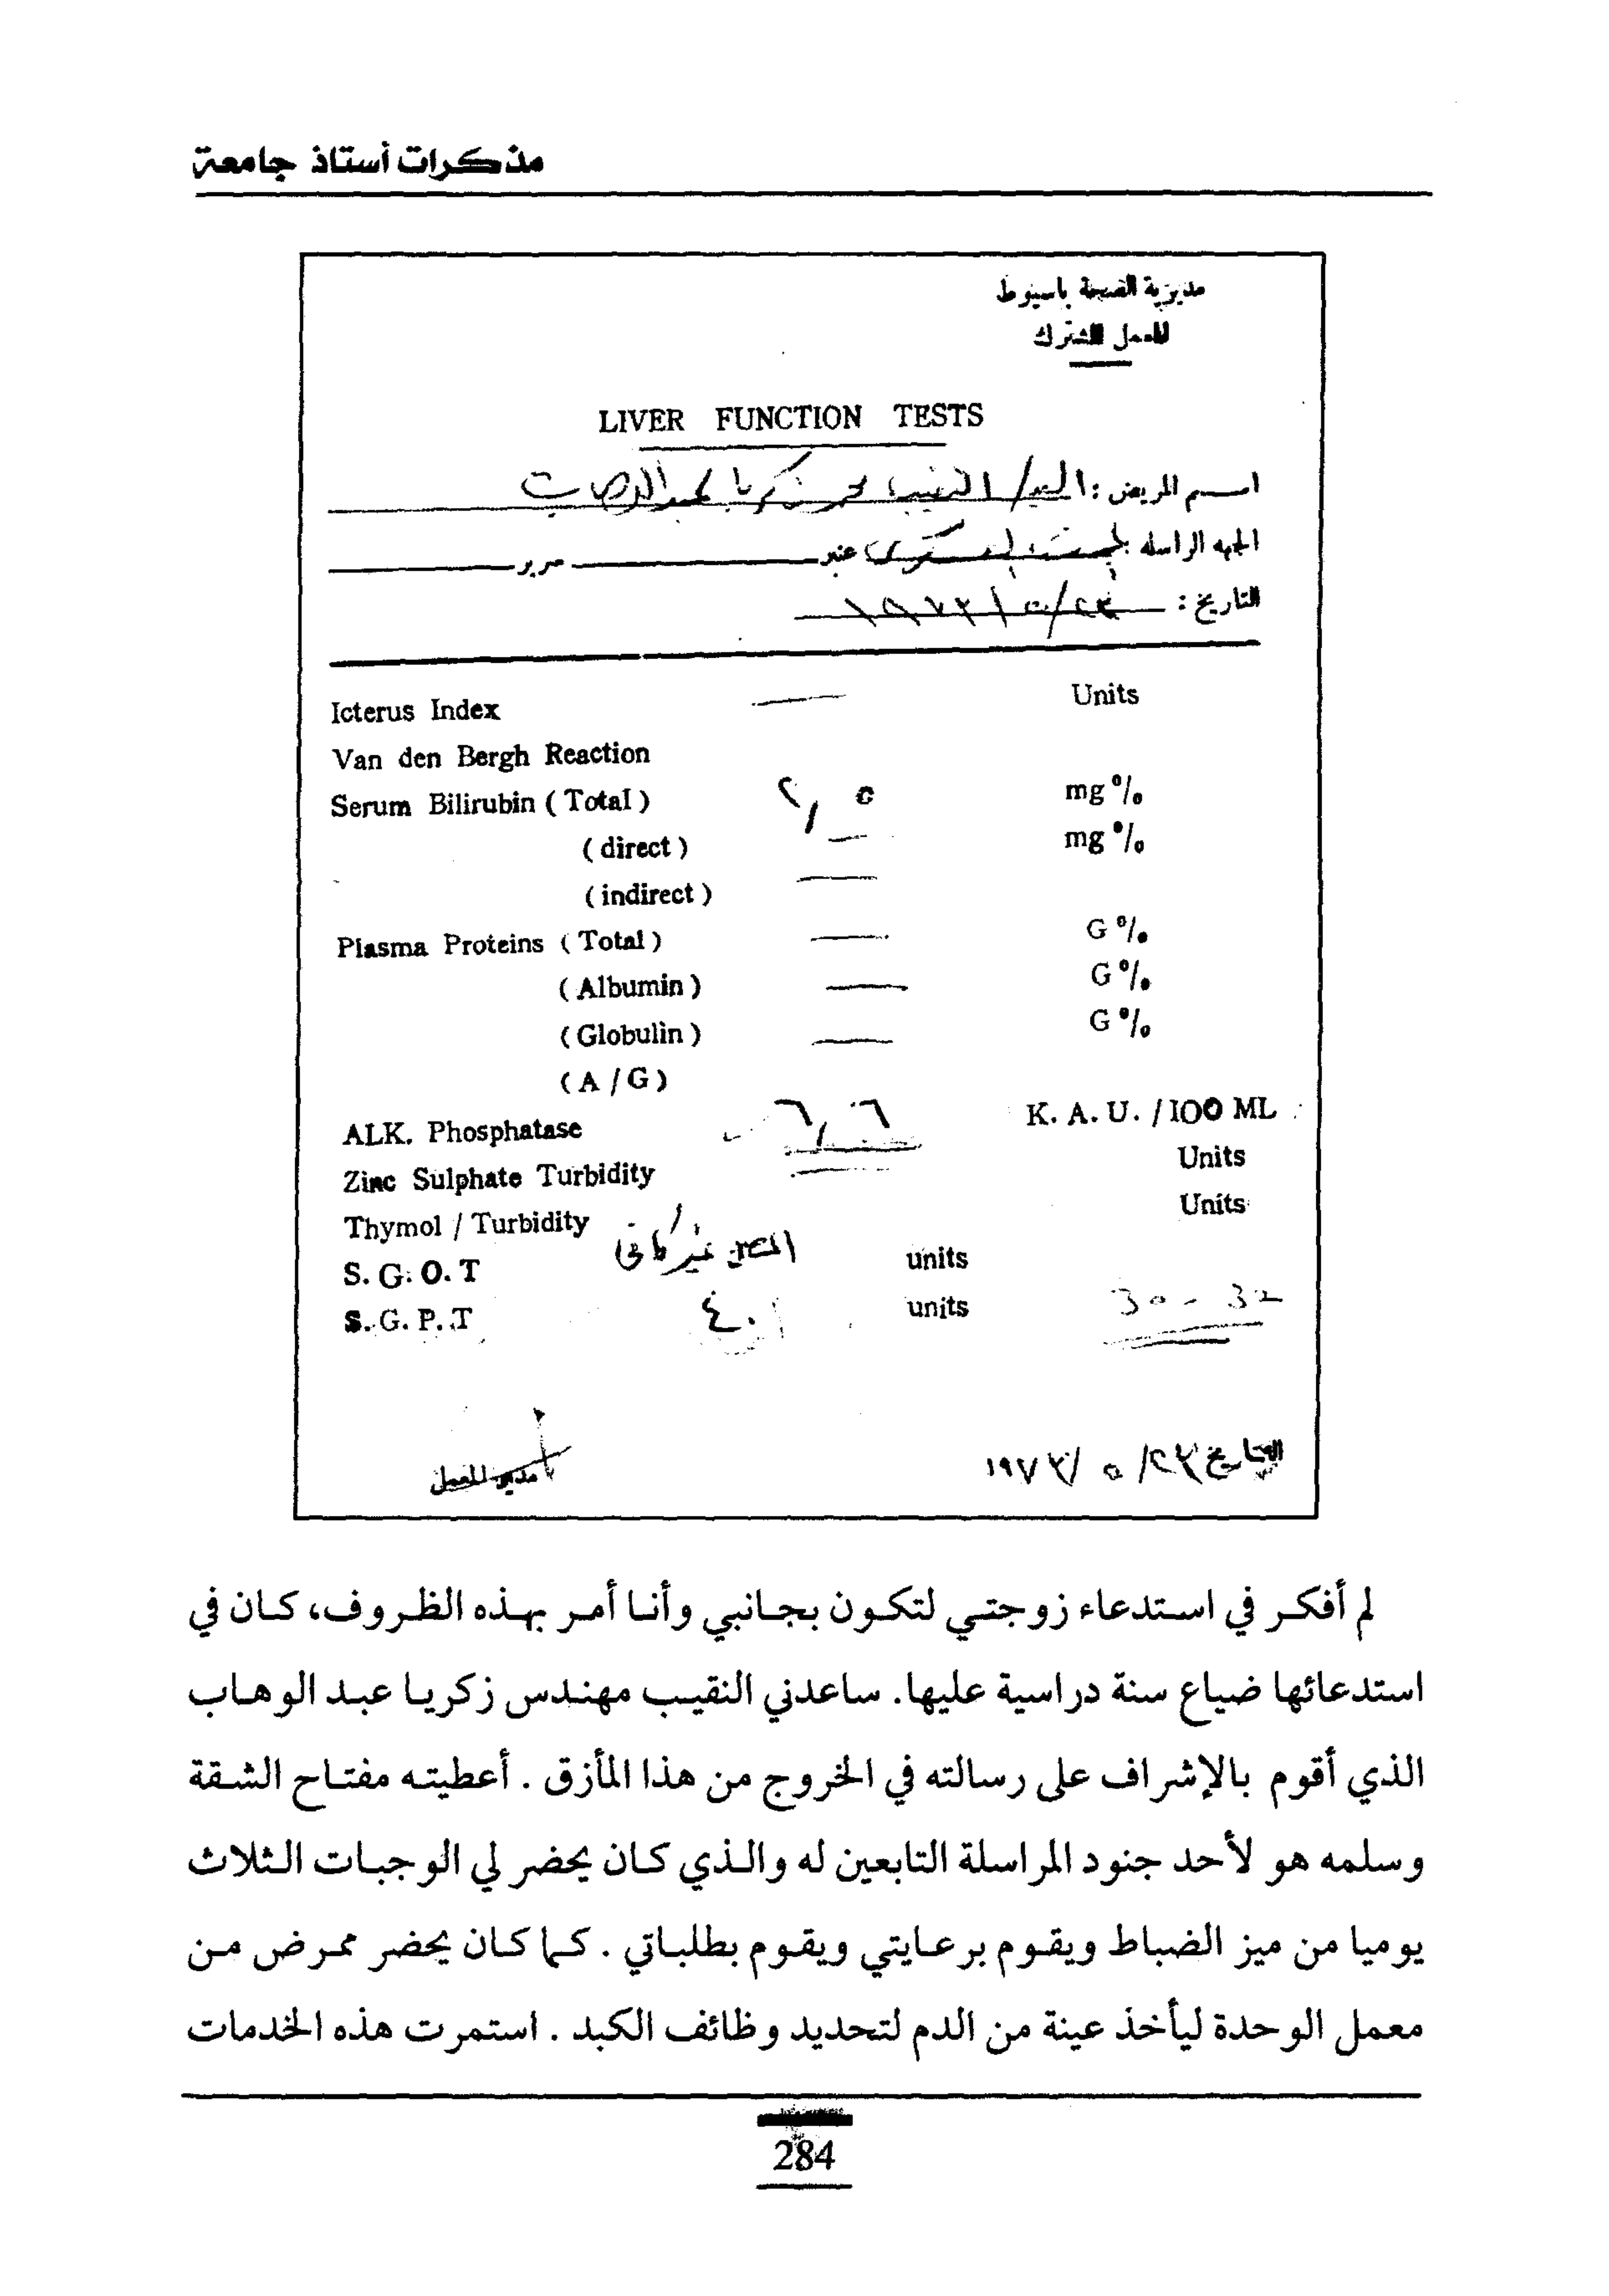 مذكرات أستاذ جامعة
مديرية الصحة باسيوط
المعمل المشترك
LIVER FUNCTION TESTS
اسم المريض : السيد / النقيب محمد زكريا عبد الوهاب
الجهه الراسله : عنبر سرير
التاريخ : ٢٣/٥/١٩٧٣
Icterus Index — Units
Van den Bergh Reaction
Serum Bilirubin ( Total ) ٢,٥ mg %
( direct ) — mg %
( indirect ) —
Plasma Proteins ( Total ) — G %
( Albumin ) — G %
( Globulin ) — G %
( A / G )
ALK. Phosphatase ٦,٦ K. A. U. / 100 ML
Zinc Sulphate Turbidity Units
Thymol / Turbidity Units
S. G. O. T المصل غير كافى units
S. G. P. T ٤٠ units 30 - 32
التاريخ ٢٣/ ٥ /١٩٧٣
مدير المعمل
لم أفكر في استدعاء زوجتي لتكون بجانبي وأنا أمر بهذه الظروف، كان في
استدعائها ضياع سنة دراسية عليها. ساعدني النقيب مهندس زكريا عبد الوهاب
الذي أقوم بالإشراف على رسالته في الخروج من هذا المأزق . أعطيته مفتاح الشقة
وسلمه هو لأحد جنود المراسلة التابعين له والذي كان يحضر لي الوجبات الثلاث
يوميا من ميز الضباط ويقوم برعايتي ويقوم بطلباتي . كما كان يحضر ممرض من
معمل الوحدة ليأخذ عينة من الدم لتحديد وظائف الكبد . استمرت هذه الخدمات
284